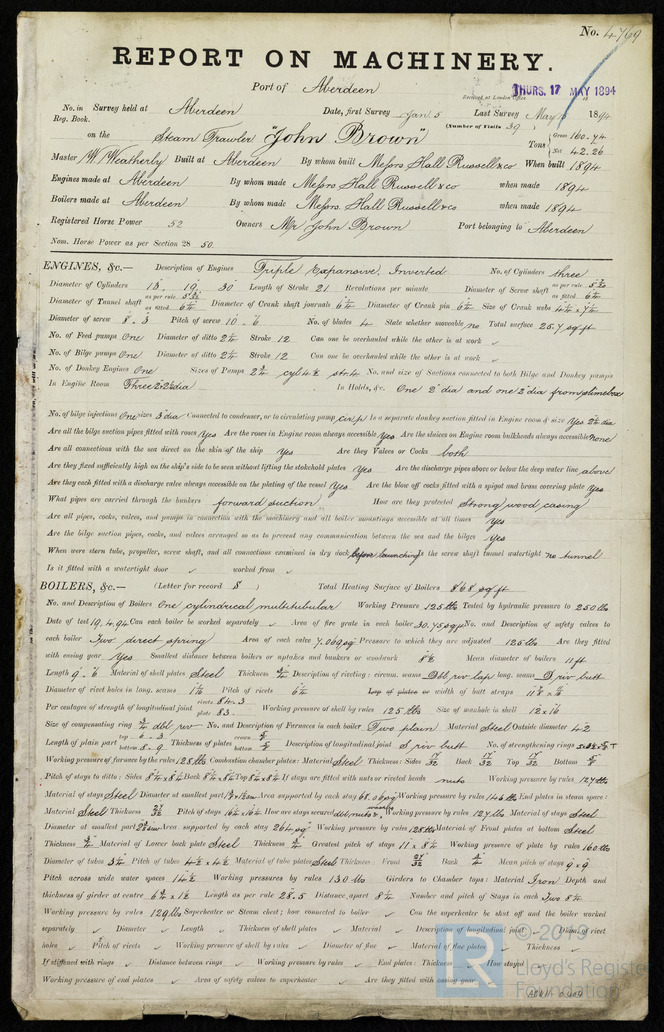 No. 4769
REPORT ON MACHINERY.
Port of Aberdeen
Received at London Office THURS. 17 MAY 1894
No. in Survey held at Aberdeen Date, first Survey Jan 5 Last Survey May 1894
Reg. Book. (Number of Visits 39)
on the Steam Trawler "John Brown" Tons Gross 160.74 Net 42.26
Master W. Weatherby Built at Aberdeen By whom built Messrs Hall Russell & co When built 1894
Engines made at Aberdeen By whom made Messrs Hall Russell & co when made 1894
Boilers made at Aberdeen By whom made Messrs. Hall Russell & co when made 1894
Registered Horse Power 52 Owners Mr John Brown Port belonging to Aberdeen
Nom. Horse Power as per Section 28 50.
ENGINES, &c.— Description of Engines Triple Expansive, Inverted No. of Cylinders three
Diameter of Cylinders 13. 19. 30 Length of Stroke 21 Revolutions per minute Diameter of Screw shaft as per rule as fitted
Diameter of Tunnel shaft as per rule as fitted Diameter of Crank shaft journals 6¼ Diameter of Crank pin 6¼ Size of Crank webs
Diameter of screw 8.3 Pitch of screw 10.6 No. of blades 4 State whether moveable no Total surface 25.7 sq ft
No. of Feed pumps One Diameter of ditto 2¼ Stroke 12 Can one be overhauled while the other is at work ✓
No. of Bilge pumps One Diameter of ditto 2¼ Stroke 12 Can one be overhauled while the other is at work ✓
No. of Donkey Engines One Sizes of Pumps No. and size of Suctions connected to both Bilge and Donkey pumps
In Engine Room Three 2½ dia In Holds, &c. One 2" dia and one 2" dia from slimebox
No. of bilge injections One sizes 3" dia Connected to condenser, or to circulating pump cir. p. Is a separate donkey suction fitted in Engine room & size Yes 2¼ dia
Are all the bilge suction pipes fitted with roses Yes Are the roses in Engine room always accessible Yes Are the sluices on Engine room bulkheads always accessible none
Are all connections with the sea direct on the skin of the ship Yes Are they Valves or Cocks both
Are they fixed sufficiently high on the ship's side to be seen without lifting the stokehold plates Yes Are the discharge pipes above or below the deep water line above
Are they each fitted with a discharge valve always accessible on the plating of the vessel Yes Are the blow off cocks fitted with a spigot and brass covering plate Yes
What pipes are carried through the bunkers forward suction How are they protected Strong wood casing
Are all pipes, cocks, valves, and pumps in connection with the machinery and all boiler mountings accessible at all times Yes
Are the bilge suction pipes, cocks, and valves arranged so as to prevent any communication between the sea and the bilges Yes
When were stern tube, propeller, screw shaft, and all connections examined in dry dock before launching Is the screw shaft tunnel watertight no tunnel
Is it fitted with a watertight door ✓ worked from ✓
BOILERS, &c.— (Letter for record S) Total Heating Surface of Boilers 868 sq ft
No. and Description of Boilers One cylindrical multitubular Working Pressure 125 lbs Tested by hydraulic pressure to 250 lbs
Date of test 19.4.94 Can each boiler be worked separately ✓ Area of fire grate in each boiler 30.75 sq ft No. and Description of safety valves to
each boiler Two direct spring Area of each valve 7.069 sq" Pressure to which they are adjusted 125 lbs Are they fitted
with easing gear Yes Smallest distance between boilers or uptakes and bunkers or woodwork Mean diameter of boilers 11 ft
Length 9.6 Material of shell plates Steel Thickness Description of riveting: circum. seams Dbl riv lap long. seams S riv butt
Diameter of rivet holes in long. seams Pitch of rivets 6¼ Lap of plates or width of butt straps
Per centages of strength of longitudinal joint rivets 84.3 plate 83. Working pressure of shell by rules 125 lbs Size of manhole in shell 12 x 16
Size of compensating ring dbl riv No. and Description of Furnaces in each boiler Two plain Material Steel Outside diameter 42
Length of plain part top 6.3 bottom 8.9 Thickness of plates crown bottom Description of longitudinal joint S riv butt No. of strengthening rings
Working pressure of furnace by the rules 128 lbs Combustion chamber plates: Material Steel Thickness: Sides 17/32 Back 17/32 Top 17/32 Bottom
Pitch of stays to ditto: Sides 8¼ x 8¼ Back 8¼ x 8¼ Top 8¼ x 8¼ If stays are fitted with nuts or riveted heads nuts Working pressure by rules 127 lbs
Material of stays Steel Diameter at smallest part Area supported by each stay 68.06 sq" Working pressure by rules 146 lbs End plates in steam space:
Material Steel Thickness 27/32 Pitch of stays 16¼ x 16¼ How are stays secured dbl. nuts & washers Working pressure by rules 127 lbs Material of stays Steel
Diameter at smallest part Area supported by each stay 264 sq" Working pressure by rules 128 lbs Material of Front plates at bottom Steel
Thickness ¾ Material of Lower back plate Steel Thickness ¾ Greatest pitch of stays 11 x 8¼ Working pressure of plate by rules 160 lbs
Diameter of tubes 3¼ Pitch of tubes 4½ x 4½ Material of tube plates Steel Thickness: Front 27/32 Back ¾ Mean pitch of stays 9 x 9
Pitch across wide water spaces 14½ Working pressures by rules 130 lbs Girders to Chamber tops: Material Iron Depth and
thickness of girder at centre Length as per rule 28.5 Distance apart 8¼ Number and pitch of Stays in each Two 8¼
Working pressure by rules 129 lbs Superheater or Steam chest; how connected to boiler ✓ Can the superheater be shut off and the boiler worked
separately ✓ Diameter ✓ Length ✓ Thickness of shell plates ✓ Material ✓ Description of longitudinal joint ✓ Diam. of rivet
holes ✓ Pitch of rivets ✓ Working pressure of shell by rules ✓ Diameter of flue ✓ Material of flue plates ✓ Thickness ✓
If stiffened with rings ✓ Distance between rings ✓ Working pressure by rules ✓ End plates: Thickness ✓ How stayed
Working pressure of end plates ✓ Area of safety valves to superheater ✓ Are they fitted with easing gear
© 2019
Lloyd's Register
Foundation